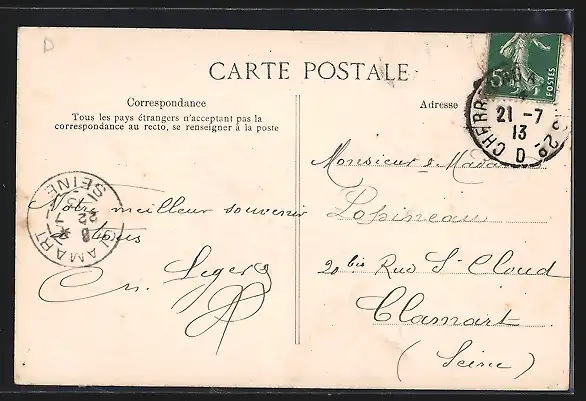 D
CARTE POSTALE
Correspondance
Tous les pays étrangers n'acceptant pas la
correspondance au recto, se renseigner à la poste
Notre meilleur souvenir
à tous
Leger
Adresse
Monsieur & Madame
Lapineau
20 bis Rue St Cloud
Clamart
(Seine)
5
POSTES
21 -7
13
CLAMART
SEINE
22 -7
13